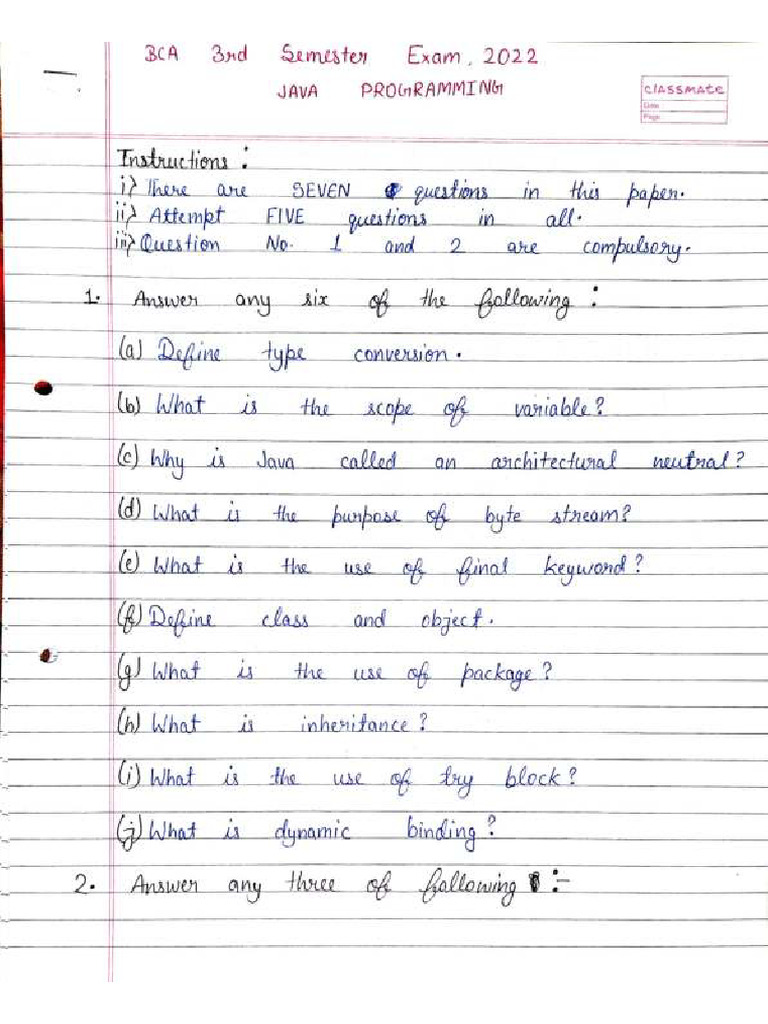 BCA 3rd Semester Exam, 2022
JAVA PROGRAMMING
classmate
Date
Page
Instructions :
i) There are SEVEN questions in this paper.
ii) Attempt FIVE questions in all.
iii) Question No. 1 and 2 are compulsory.
1. Answer any six of the following :
(a) Define type conversion.
(b) What is the scope of variable?
(c) Why is Java called an architectural neutral?
(d) What is the purpose of byte stream?
(e) What is the use of final keyword?
(f) Define class and object.
(g) What is the use of package?
(h) What is inheritance?
(i) What is the use of try block?
(j) What is dynamic binding?
2. Answer any three of following :-